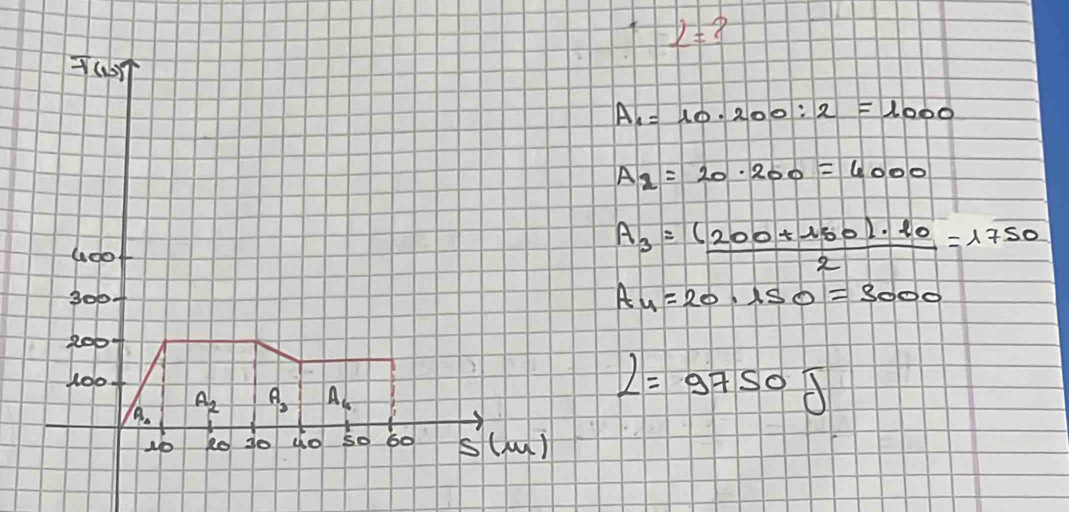 L=?
F(N)
400
300
200
100
A₁ A₂ A₃ A₄
10 20 30 40 50 60 S(m)
A₁= 10·200:2 = 1000
A₂= 20·200 = 4000
A₃ = (200+150)·10 / 2 = 1750
A₄=20·150 = 3000
L= 9750 J